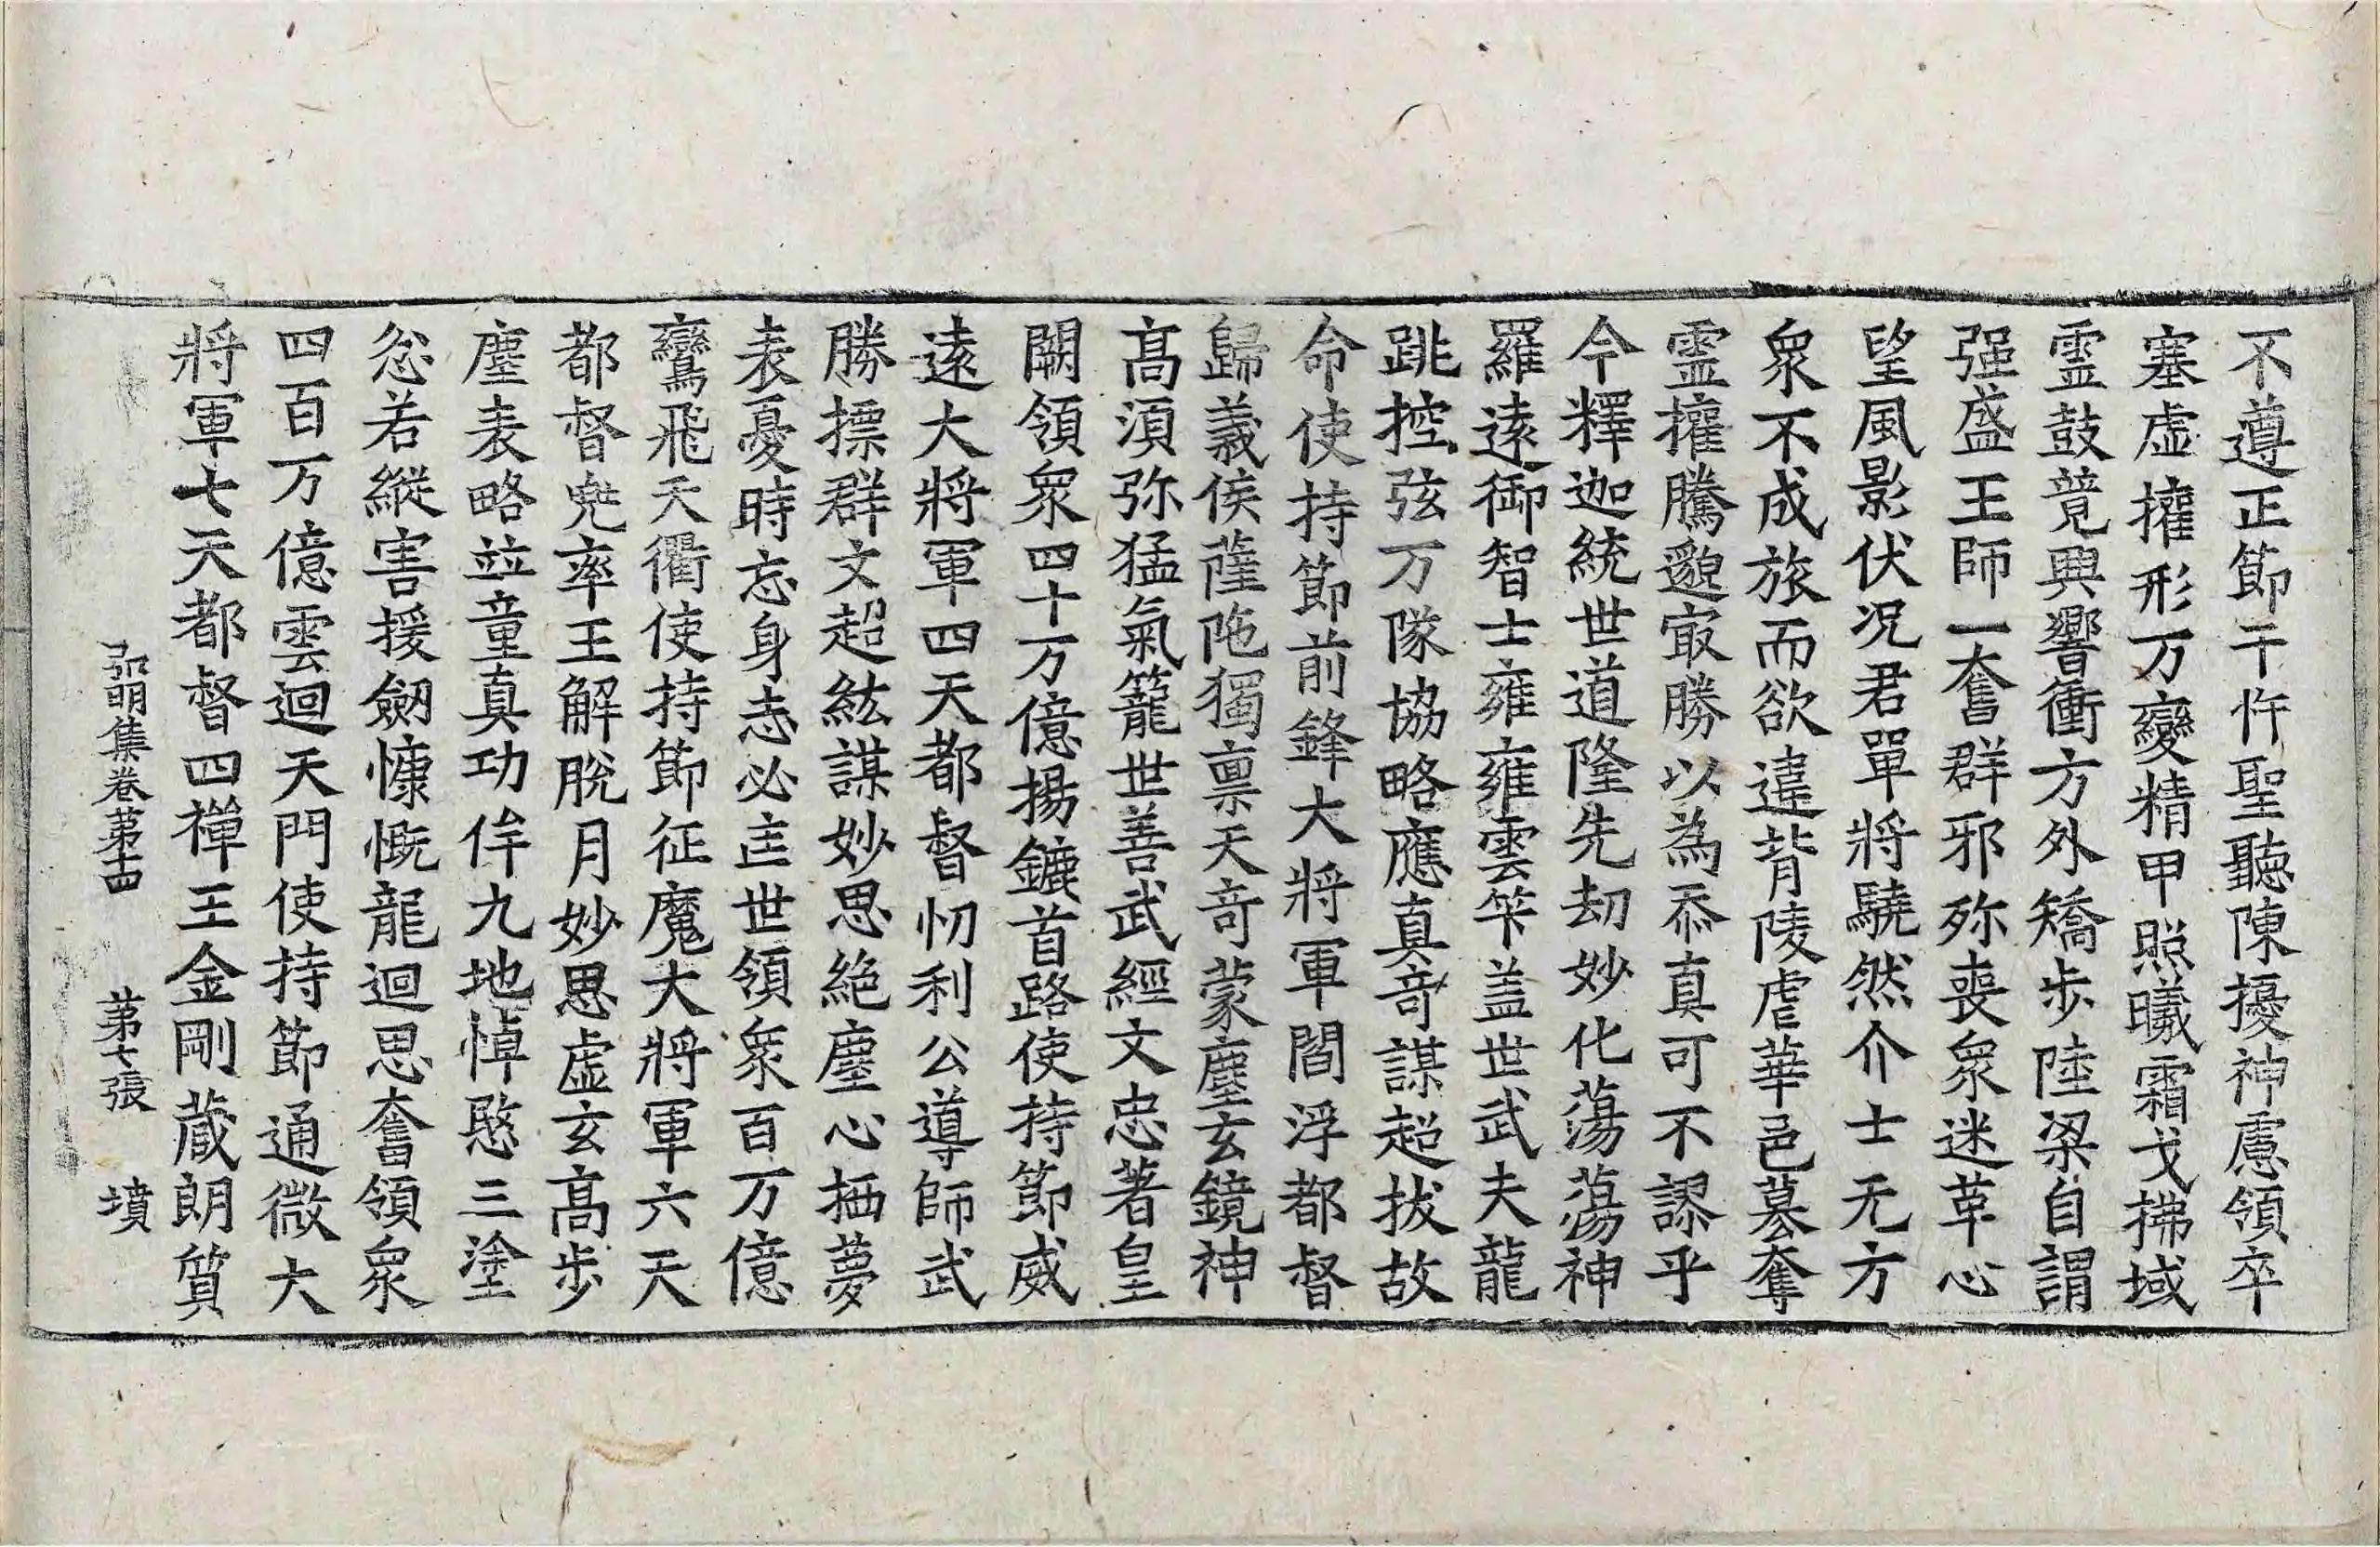 不遵正節干忤聖聽陳擾神慮領卒
塞虛擁形万變精甲照曦霜戈拂域
靈鼓競興響衝方外矯步陸梁自謂
强盛王師一奮群邪殄喪衆迷革心
望風影伏况君單將驍然介士无方
衆不成旅而欲違背陵虐華邑募奪
靈擁騰邈㝡勝以為忝真可不謬乎
今釋迦統世道隆先劫妙化蕩蕩神
羅遠御智士雍雍雲笇盖世武夫龍
跳控弦万隊協略應真竒謀超拔故
命使持節前鋒大將軍閻浮都督
歸義侯薩陁獨禀天竒蒙塵玄鏡神
髙湏弥猛氣籠世善武經文忠著皇
闕領衆四十万億揚鑣首路使持節威
遠大將軍四天都督忉利公導師武
勝摽群文超紘謀妙思絶塵心栖夢
表憂時忘身志必匡世領衆百万億
鸞飛天衢使持節征魔大將軍六天
都督兠率王解脫月妙思虛玄髙步
塵表略並童真功侔九地悼愍三塗
忿若縱害援劒慷慨龍迴思奮領衆
四百万億雲迴天門使持節通微大
將軍七天都督四禪王金剛蔵朗質
弘明集卷苐十四 苐七張 墳